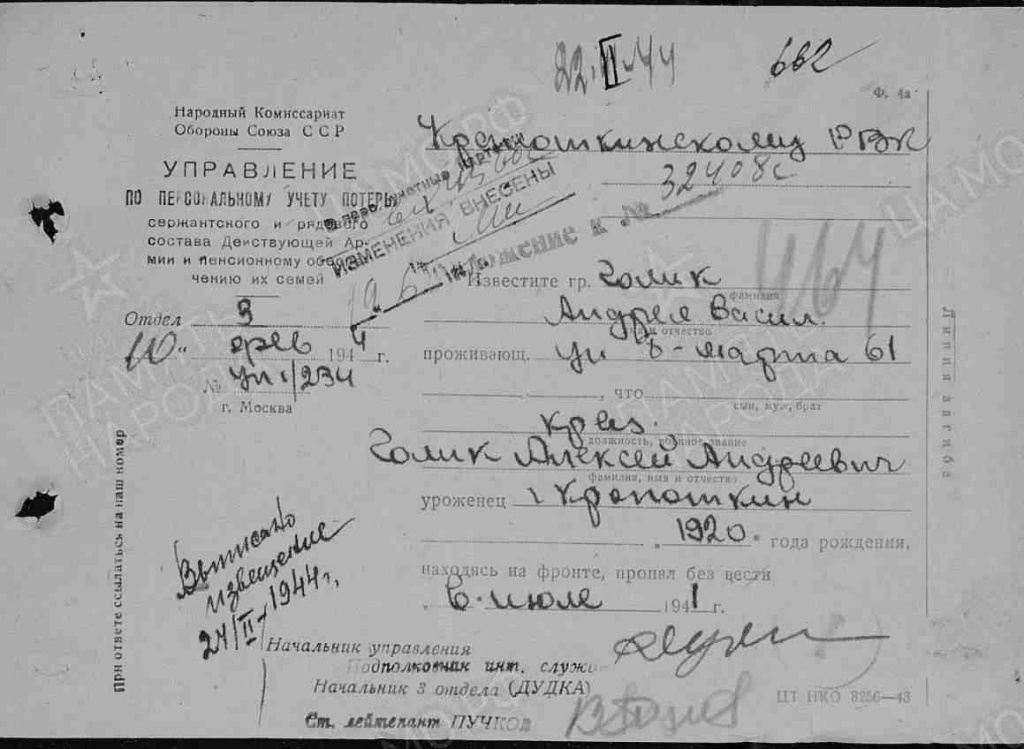 22.II.44
662
Ф. 4а
Народный Комиссариат
Обороны Союза ССР
УПРАВЛЕНИЕ
ПО ПЕРСОНАЛЬНОМУ УЧЕТУ ПОТЕРЬ
сержантского и рядового
состава Действующей Ар-
мии и пенсионному обеспе-
чению их семей
Отдел 3
10 " фев 1944 г.
№ уп1/234
г. Москва
Кропоткинскому РВК
32408с
ИЗМЕНЕНИЯ ВНЕСЕНЫ
464
Известите гр. Голик
фамилия
Андрея Васил.
имя и отчество
проживающ. ул 8-марта 61
, что
сын, муж, брат
кр-ец
должность, военное звание
Голик Алексей Андреевич
фамилия, имя и отчество
уроженец г Кропоткин
"1920" года рождения,
находясь на фронте, пропал без вести
в июле 1941 г.
Выписано
извещение
24/II-1944г.
Начальник управления
Подполковник инт. служ
Начальник 3 отдела (ДУДКА)
Ст. лейтенант ПУЧКОВ
ЦТ НКО 3256—43
При ответе ссылаться на наш номер
Линия загиба